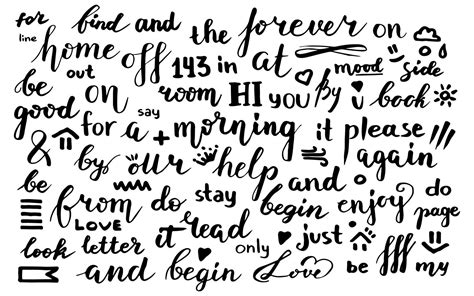 for find and the forever on
line home off 143 in at mood side
be out on room HI you by i book
good for a say + morning it please
& by our help again
be from do stay and enjoy do
LOVE begin page
look letter it read only just
and begin Love be my